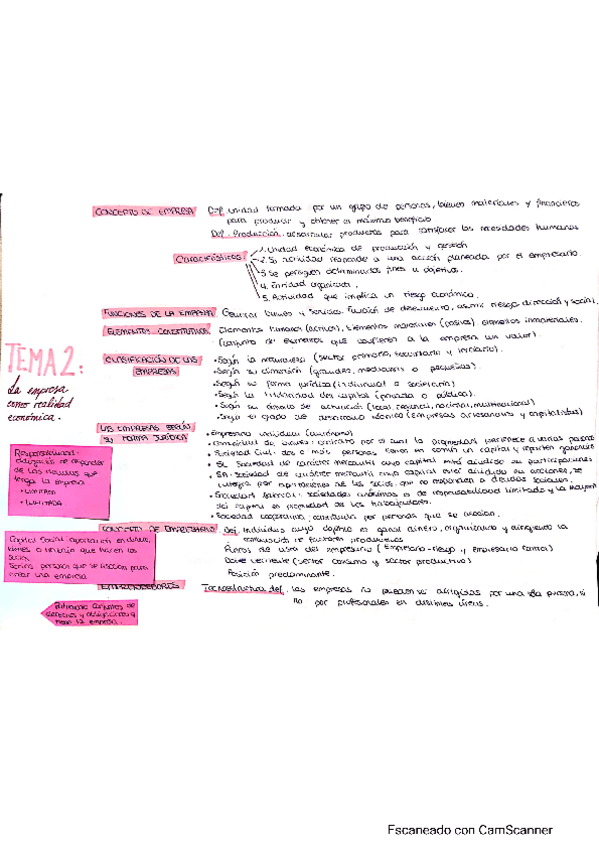 CONCEPTO DE EMPRESA Def. Unidad formada por un grupo de personas, bienes materiales y financieros
para producir y obtener el máximo beneficio
Def. Producción: desarrollar productos para satisfacer las necesidades humanas
Características
1. Unidad económica de producción y gestión
2. Su actividad responde a una acción planeada por el empresario.
3. Se persiguen determinados fines u objetivos.
4. Entidad organizada.
5. Actividad que implica un riesgo económico.
FUNCIONES DE LA EMPRESA Generar bienes y servicios. Función de descuento, asumir riesgo, dirección y social.
ELEMENTOS CONSTITUTIVOS Elementos humanos (activos), Elementos materiales (pasivos), elementos inmateriales.
(conjunto de elementos que confieren a la empresa un valor).
TEMA 2:
La empresa
como realidad
económica.
CLASIFICACIÓN DE LAS
EMPRESAS
• Según la naturaleza (sector primario, secundario y terciario).
• Según su dimensión (grandes, medianas o pequeñas).
• Según su forma jurídica (individual o societaria).
• Según la titularidad del capital (privada o pública).
• Según su ámbito de actuación (local, regional, nacional, multinacional)
• Según el grado de desarrollo técnico (empresas artesanas y capitalistas)
LAS EMPRESAS SEGÚN
SU FORMA JURÍDICA
• Empresario individual (autónomo)
• Comunidad de bienes: contrato por el cual la propiedad pertenece a varias personas
• Sociedad Civil: dos o más personas ponen en común un capital y reparten ganancias
• SL Sociedad de carácter mercantil cuyo capital está dividido en participaciones
• SA: Sociedad de carácter mercantil cuyo capital está dividido en acciones, se
integra por aportaciones de los socios que no responden a deudas sociales.
• Sociedad laboral: sociedades anónimas o de responsabilidad limitada y la mayoría
del capital es propiedad de los trabajadores.
• Sociedad cooperativa, constituida por personas que se asocian.
Responsabilidad:
obligación de responder
de las deudas que
tenga la empresa
• LIMITADA
CONCEPTO DE EMPRESARIO Def. Individuo cuyo objetivo es ganar dinero, organizando y dirigiendo la
combinación de factores productivos
(Empresario-riesgo y empresario control)
(sector consumo y sector productivo)
Posición predominante.
Capital Social: aportación en dinero,
bienes o trabajo que hacen los
socios.
Socios: personas que se asocian para
crear una empresa
EMPRENDEDORES Tecnoestructura def. las empresas no pueden ser dirigidas por una sola persona, si
no por profesionales en distintas áreas.
conjuntos de
derechos y obligaciones q
tiene la empresa.
Escaneado con CamScanner